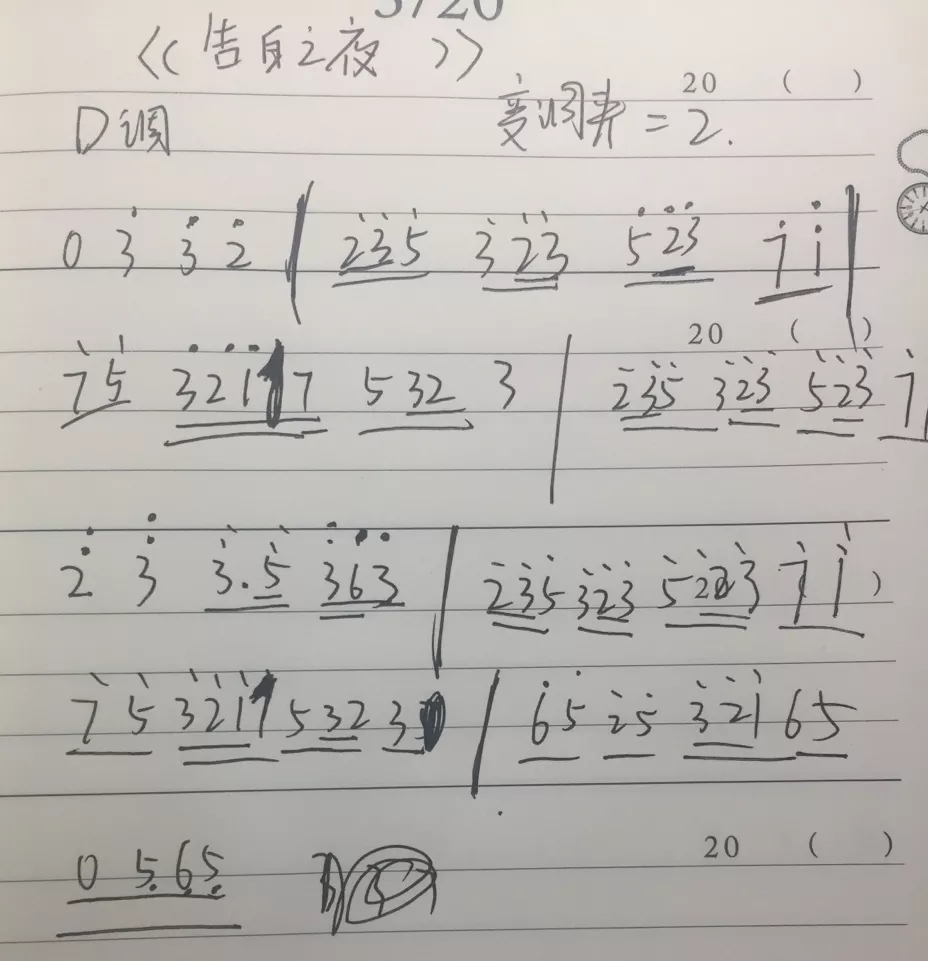 5/20
《告白之夜》
20 ( )
D调 变调夹=2.
0 3̇ 3̇ 2̇ | 2̇3̇5̇ 3̇2̇3̇ 5̇2̇3̇ 7̇ 1̇ |
20 ( )
7̇ 5̇ 3̇2̇1̇7 532 3 | 2̇3̇5̇ 3̇2̇3̇ 5̇2̇3̇ 7̇
2̇ 3̇ 3̇.5̇ 3̇6̇3̇ | 2̇3̇5̇ 3̇2̇3̇ 5̇2̇3̇ 7̇ 1̇ )
7̇ 5̇ 3̇2̇1̇ 532 3 | 6̇5̇ 2̇5̇ 3̇2̇1̇ 65
20 ( )
0 5̣6̣5̣